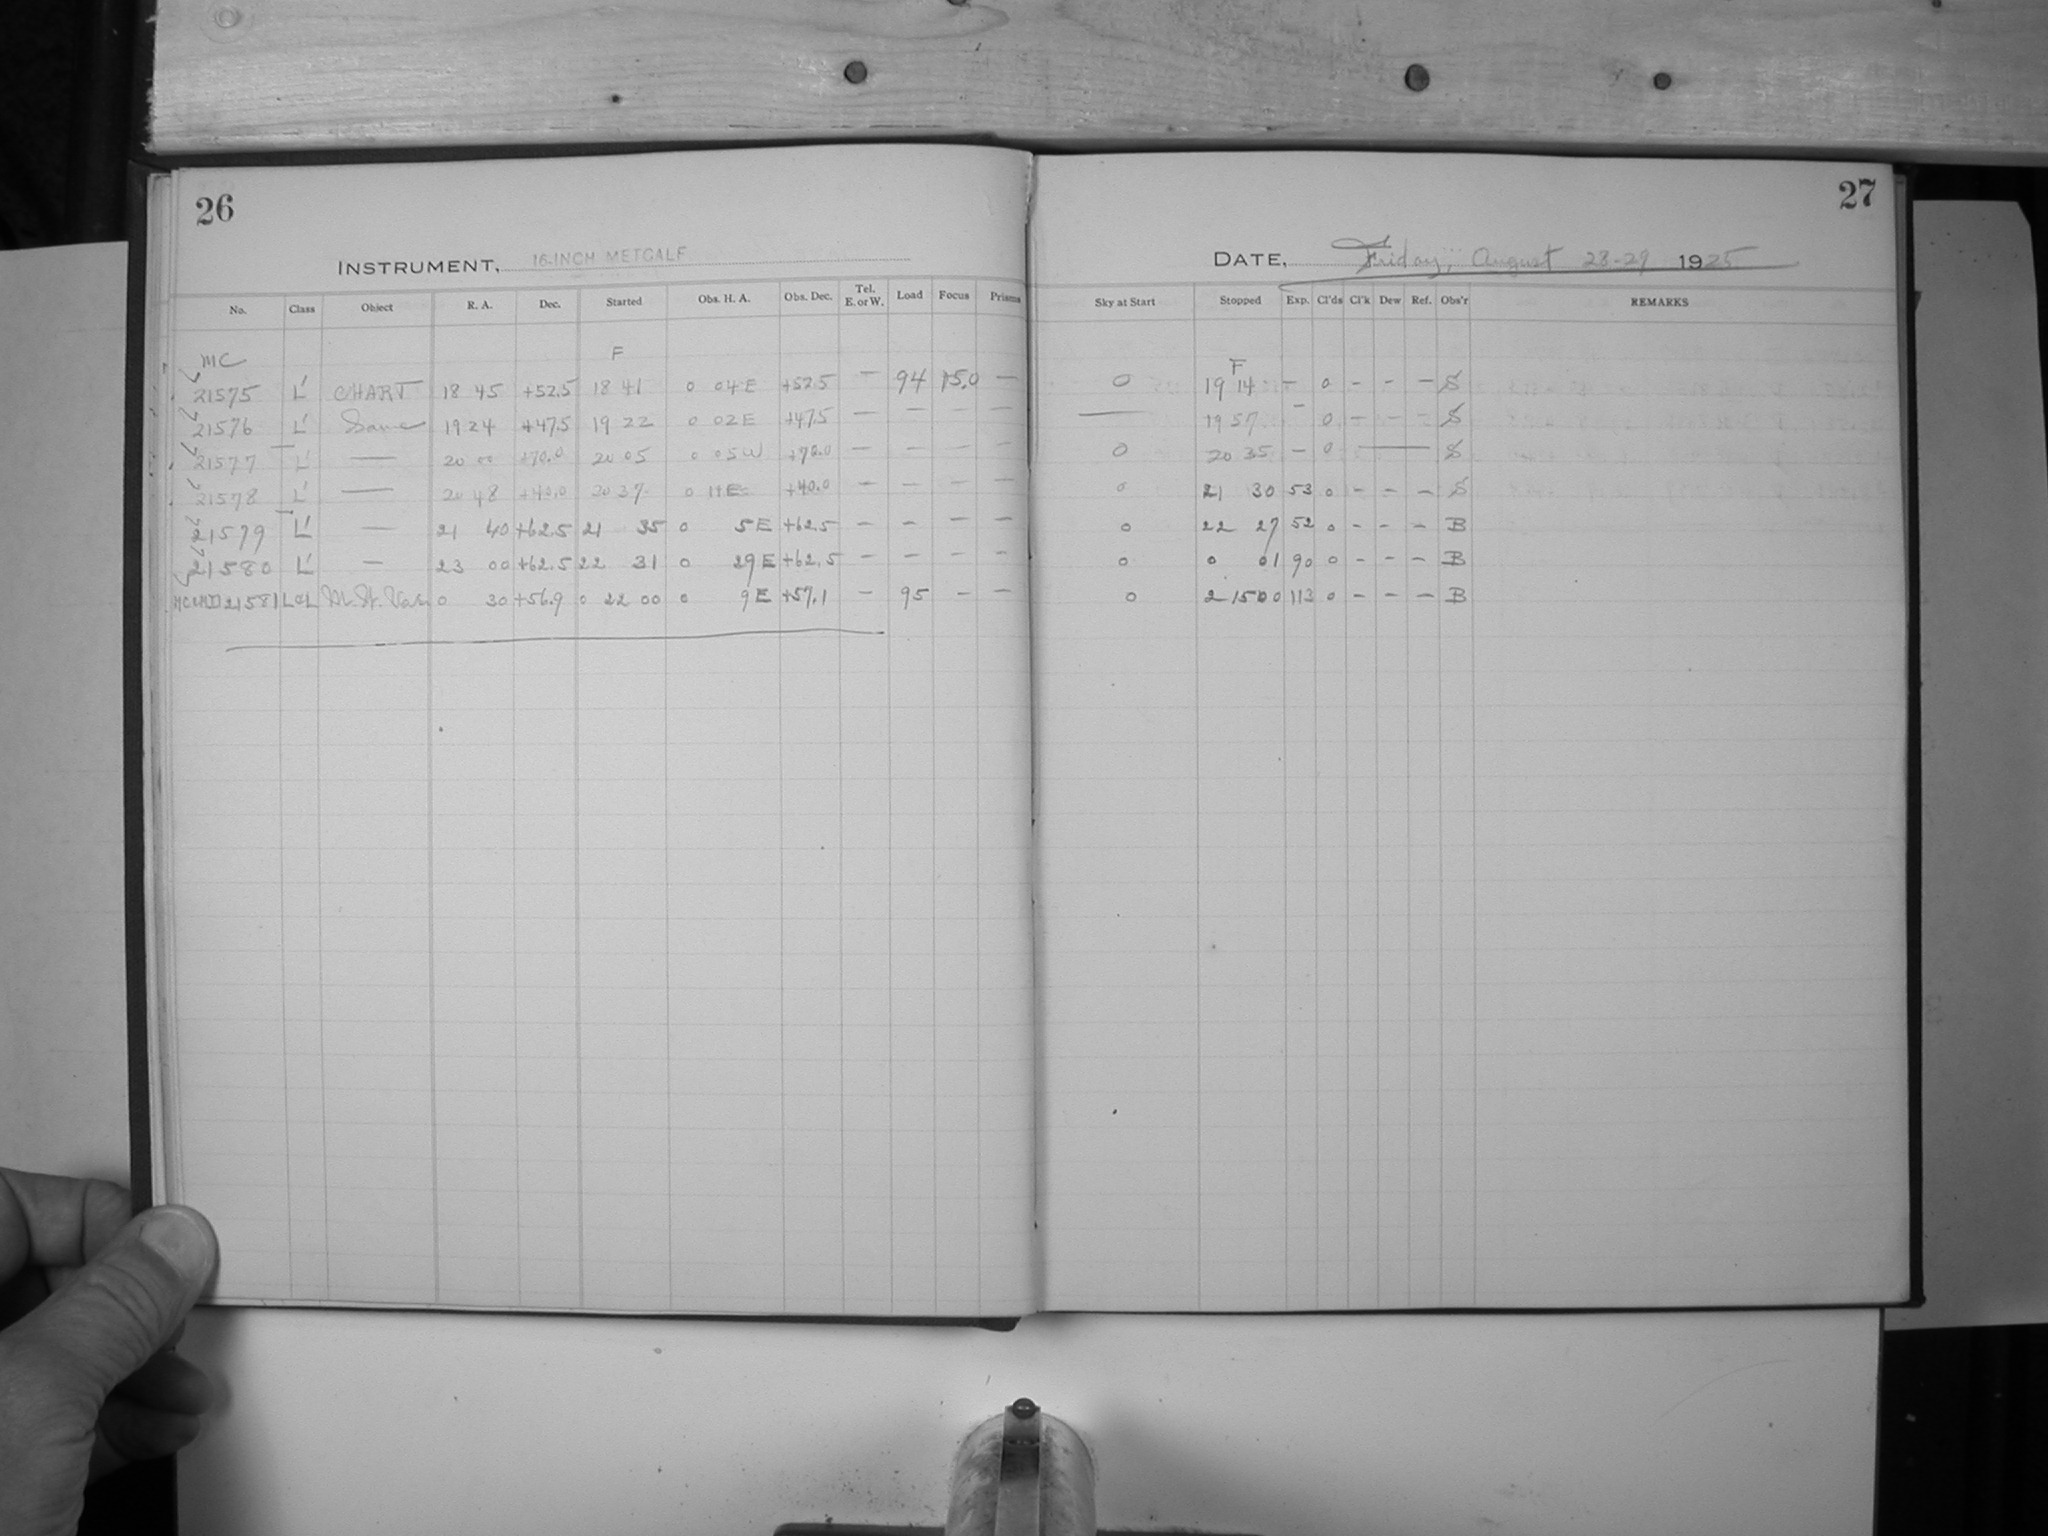 26
INSTRUMENT, 16-INCH METCALF
No. Class Object R. A. Dec. Started Obs. H. A. Obs. Dec. Tel. E. or W. Load Focus Prisms
MC F
21575 L' CHART 18 45 +52.5 18 41 0 04 E +52.5 — 94 15.0 —
21576 L' Same 19 24 +47.5 19 22 0 02 E +47.5 — — — —
21577 L' — 20 00 +70.0 20 05 0 05 W +70.0 — — — —
21578 L' — 20 48 +40.0 20 37 0 11 E +40.0 — — — —
21579 L' — 21 40 +62.5 21 35 0 5 E +62.5 — — — —
21580 L' — 23 00 +62.5 22 31 0 29 E +62.5 — — — —
21581 0 30 +56.9 0 22 00 0 9 E +57.1 — 95 — —
27
DATE, Friday, August 28-29 1925
Sky at Start Stopped Exp. Cl'ds Cl'k Dew Ref. Obs'r REMARKS
F
0 19 14 — 0 - - — S
— 19 57 — 0 - - - S
0 20 35 — 0 — S
0 21 30 53 0 - - — S
0 22 27 52 0 - - — B
0 0 01 90 0 - - — B
0 2 15 00 113 0 - - — B